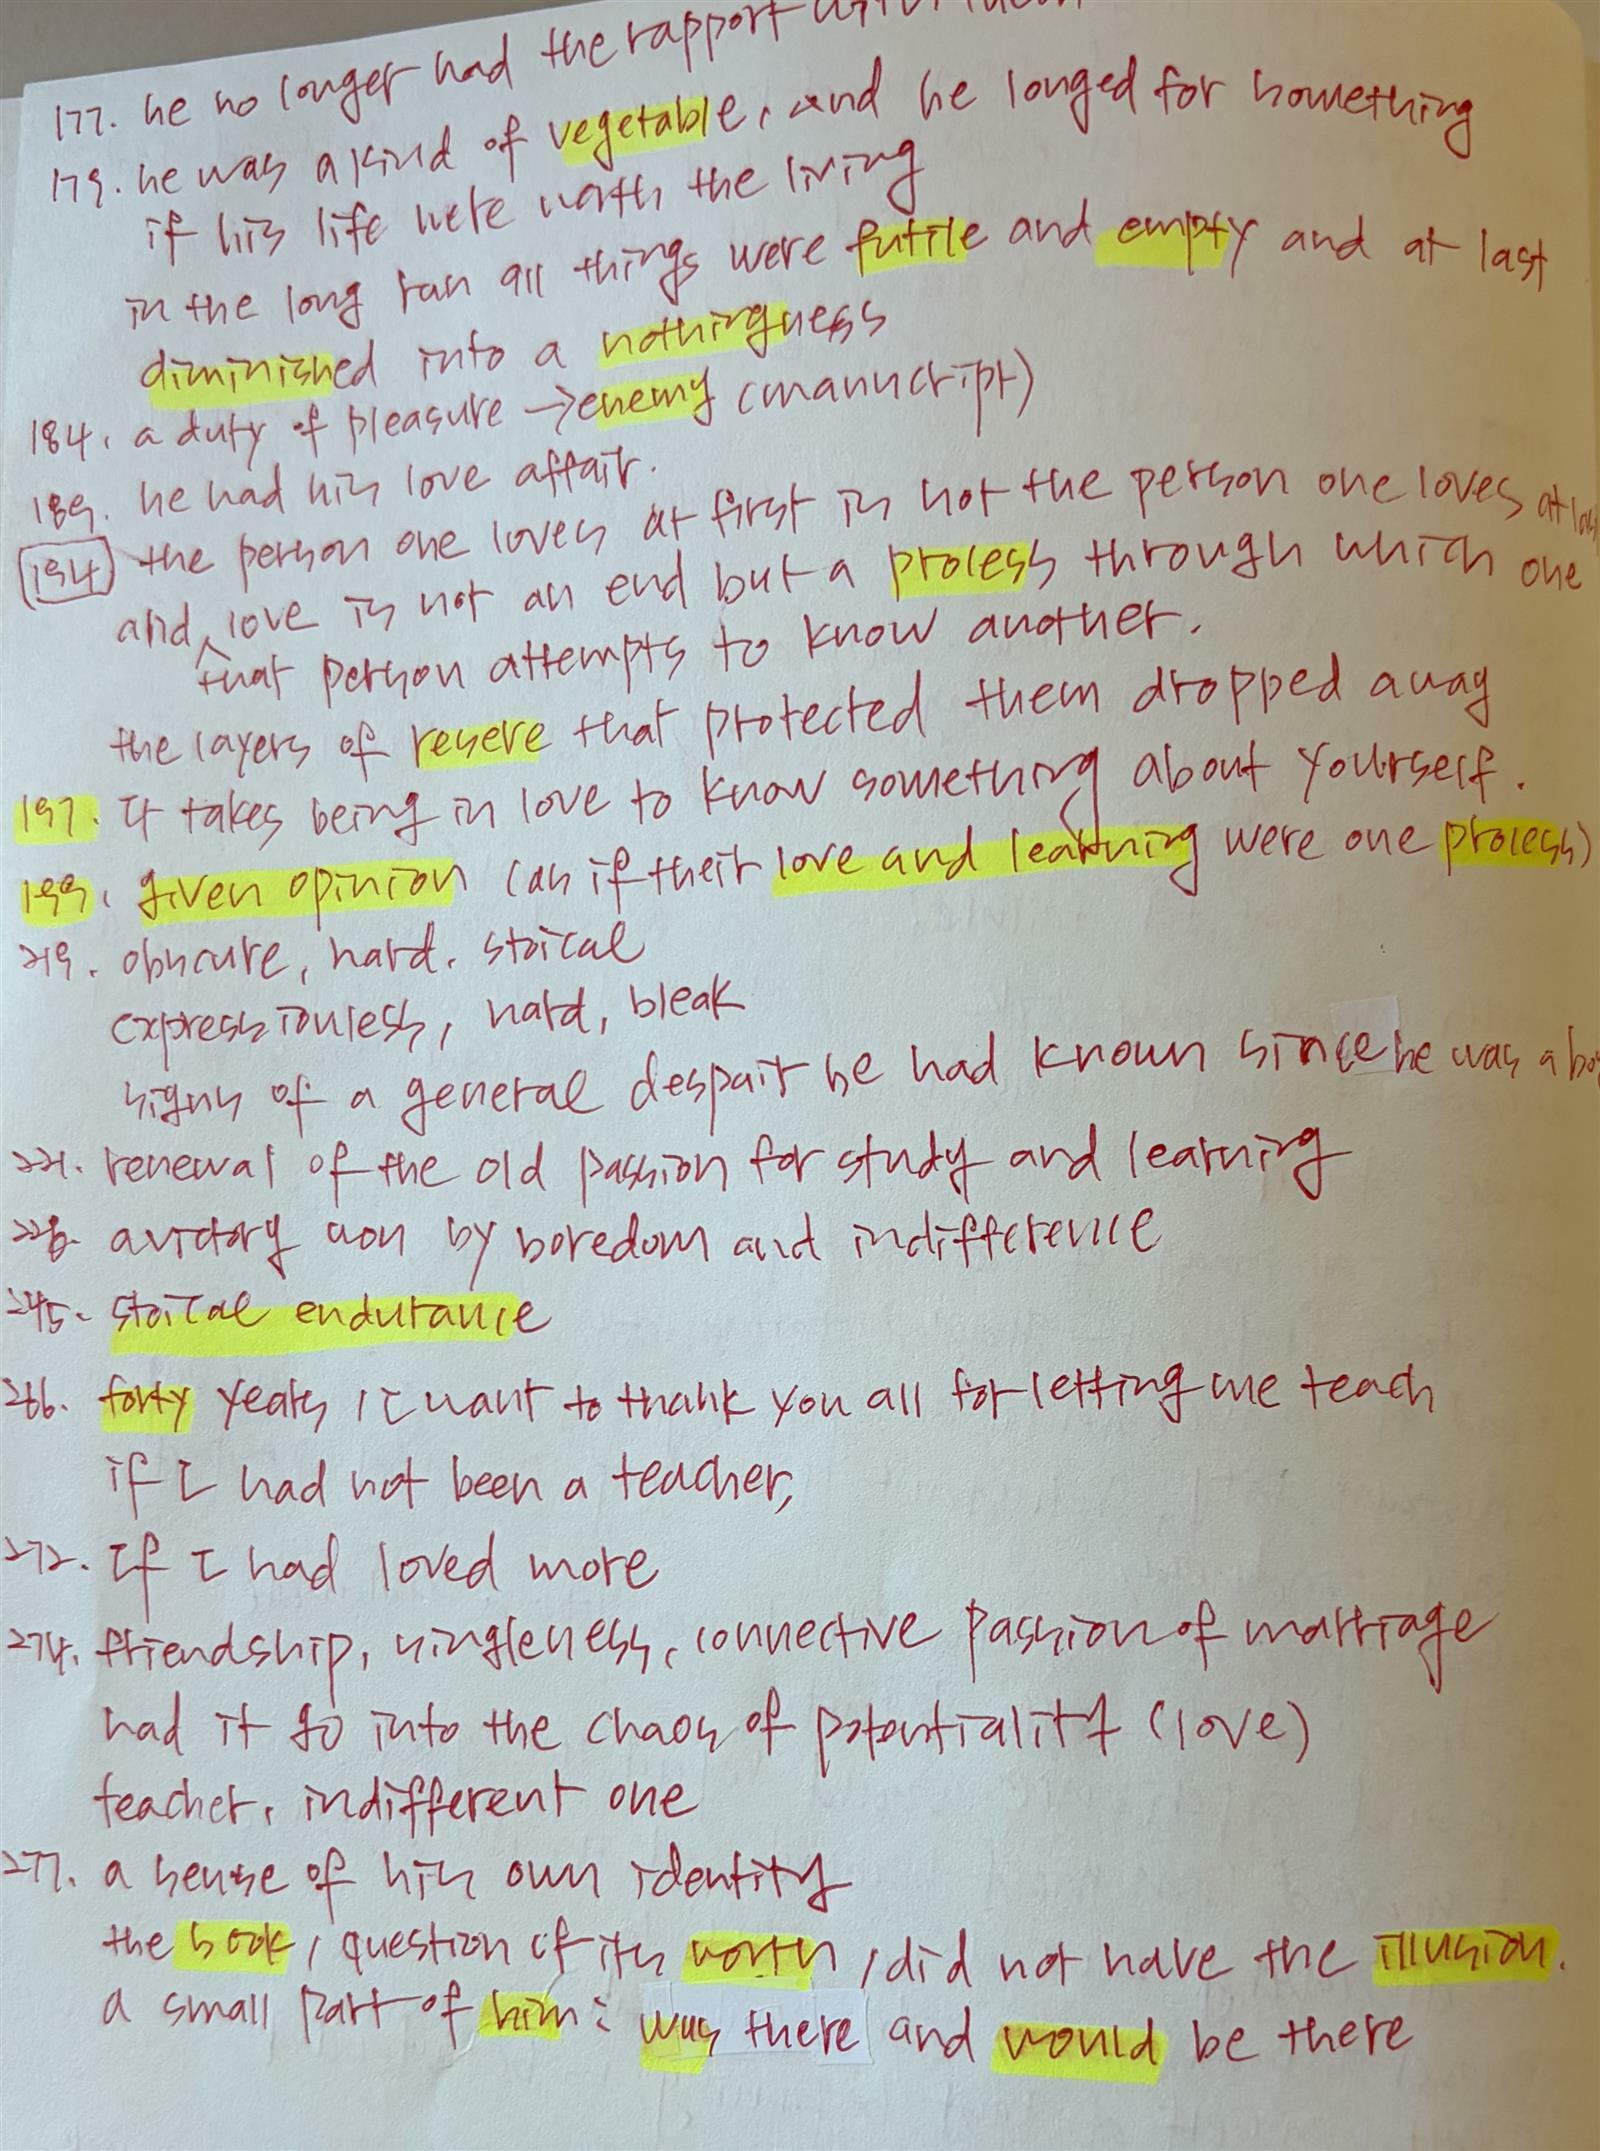 177. he no longer had the rapport with them
179. he was a kind of vegetable, and he longed for something
if his life were worth the living
in the long run all things were futile and empty and at last
diminished into a nothingness
184. a duty of pleasure → enemy (manucript)
189. he had his love affair.
194 the person one loves at first is not the person one loves at las
and love is not an end but a process through which one
that person attempts to know another.
the layers of reserve that protected them dropped away
197. It takes being in love to know something about yourself.
199. given opinion (as if their love and learning were one process)
219. obscure, hard. stoical
expressionless, hard, bleak
signs of a general despair he had known since he was a bo
221. renewal of the old passion for study and learning
228. a victory won by boredom and indifference
245. stoical endurance
266. forty years, I want to thank you all for letting me teach
if I had not been a teacher,
272. If I had loved more
274. friendship, singleness, connective passion of marriage
had it go into the chaos of potentiality (love)
teacher, indifferent one
277. a sense of his own identity
the book, question of its worth, did not have the illusion.
a small part of him: was there and would be there